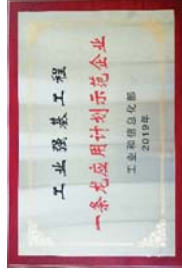 工业强基工程
一条龙应用计划示范企业
工业和信息化部
2019年